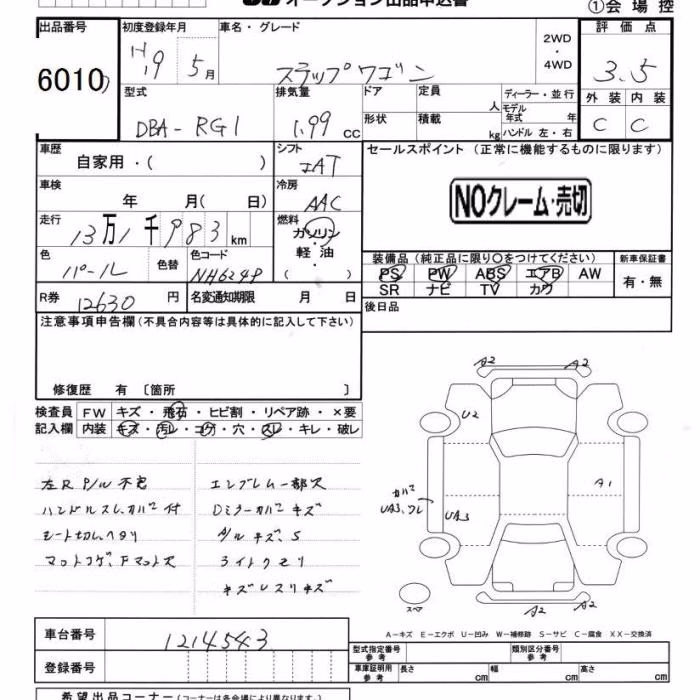 オークション出品申込書
①会場控
出品番号 初度登録年月 車名・グレード 2WD ・ 4WD 評価点
6010
H19 5月 ステップワゴン 3.5
型式 排気量 ドア 定員 人 ディーラー・並行 外装 内装
DBA-RG1 1.99 cc 形状 積載 kg モデル年式 年 ハンドル 左・右 C C
車歴 シフト セールスポイント (正常に機能するものに限ります)
自家用・( ) IAT
車検 冷房
年 月( 日) AAC NOクレーム・売切
走行 燃料
13万1千983km ガソリン・軽油・( )
色 色替 色コード 装備品(純正品に限り○をつけてください) 新車保証書
パール NH624P PS PW ABS エアB AW 有・無
SR ナビ TV カワ
R券 12630円 名変通知期限 月 日
後日品
注意事項申告欄(不具合内容等は具体的に記入して下さい)
修復歴 有 〔箇所 〕
検査員 FW キズ・飛石・ヒビ割・リペア跡・×要
記入欄 内装 キズ・汚レ・コゲ・穴・スレ・キレ・破レ
左R P/W不良 エンブレム一部欠
ハンドルスレ、カバー付 Dミラーカバーキズ
シート切レ、ヘタリ A/Wキズ、S
マットコゲ、Fマット欠 ライトクモリ
A2 A2
U2
A1
カバー
UA3、ワレ UA3
スペア
A2 A2
A-キズ E-エクボ U-凹み W-補修跡 S-サビ C-腐食 XX-交換済
車台番号 1214543
型式指定番号 参考 類別区分番号 参考
登録番号 車庫証明用 参考 長さ cm 幅 cm 高さ cm
希望出品コーナー(コーナーは各会場により異なります。)